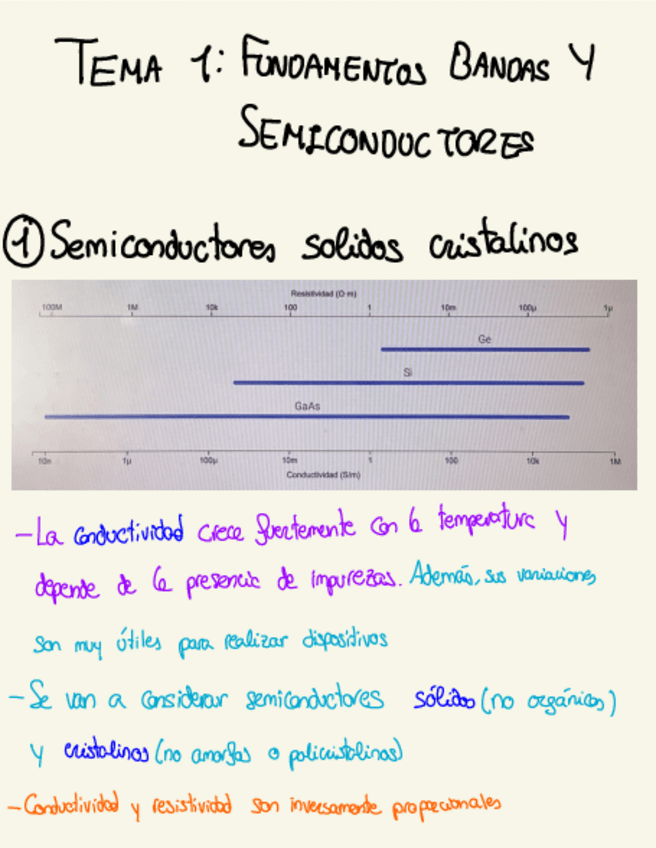 TEMA 1: FUNDAMENTOS BANDAS Y
SEMICONDUCTORES
① Semiconductores solidos cristalinos
Resistividad (Ω·m)
100M 1M 10k 100 1 10m 100μ 1μ
Ge
Si
GaAs
10n 1μ 100μ 10m 1 100 10k 1M
Conductividad (S/m)
- La conductividad crece fuertemente con la temperatura y
depende de la presencia de impurezas. Además, sus variaciones
son muy útiles para realizar dispositivos
- Se van a considerar semiconductores sólidos (no orgánicos)
y cristalinos (no amorfos o policristalinos)
- Conductividad y resistividad son inversamente proporcionales